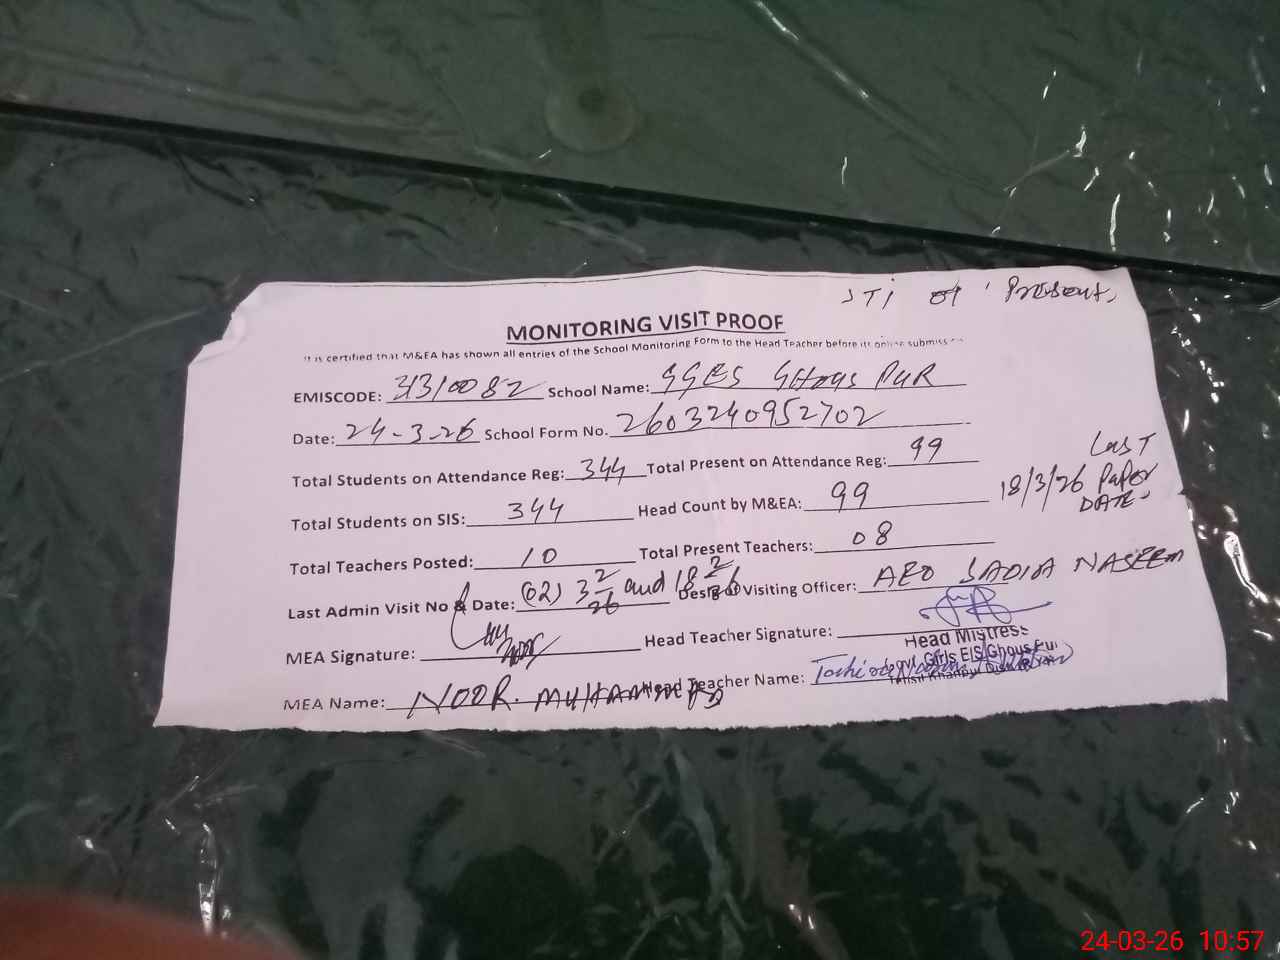 STI 01 Present,
MONITORING VISIT PROOF
It is certified that M&EA has shown all entries of the School Monitoring Form to the Head Teacher before its online submiss
EMISCODE: 31310082 School Name: GGES GHous PUR
Date: 24-3-26 School Form No. 2603240952702
Total Students on Attendance Reg: 344 Total Present on Attendance Reg: 99
Total Students on SIS: 344 Head Count by M&EA: 99
LasT
18/3/26 PaPer
DATE.
Total Teachers Posted: 10 Total Present Teachers: 08
Last Admin Visit No & Date: (02) 3 2/26 and 18 2/26 Desig of Visiting Officer: AEO SADIA NASEEM
MEA Signature: Head Teacher Signature:
Head Mistress
Govt. Girls E/S Ghous Pur
MEA Name: NOOR MUHAMMAD Head Teacher Name:
24-03-26 10:57